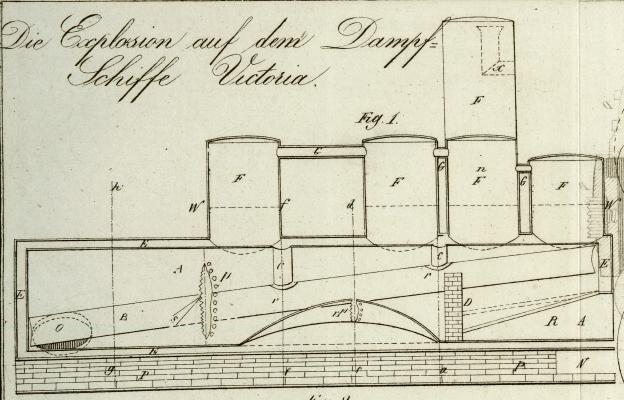 Die Explosion auf dem Dampf=
Schiffe Victoria.
Fig. 1.
x
F
G
F
F
G
n
F
G
F
h
W
f
d
W
E
A
p
C
C
r
r
E
E
s
B
O
n
p
D
R
A
E
g
P
f
e
a
P
N